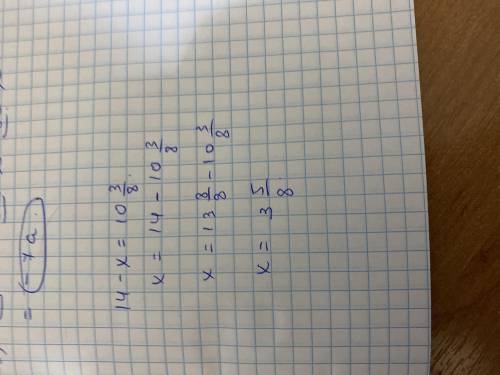 14 - x = 10 3/8.
x = 14 - 10 3/8
x = 13 8/8 - 10 3/8
x = 3 5/8.